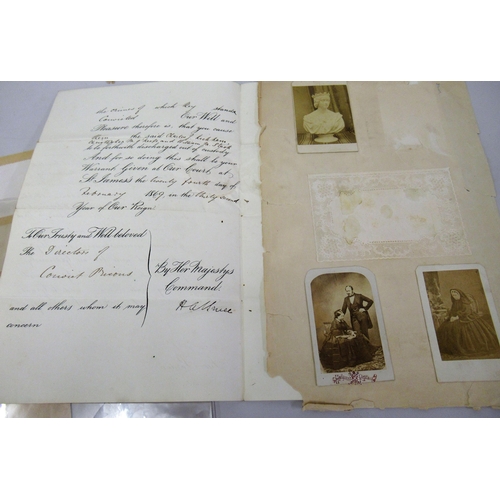 the crimes of which they stand
Convicted Our Will and
Pleasure therefore is, that you cause
them the said
to be forthwith discharged out of custody
And for so doing this shall be your
Warrant Given at Our Court, at
St. James's the twenty fourth day of
February 1869, in the Thirty second
Year of Our Reign.
To Our Trusty and Well beloved
The Directors of
Convict Prisons
and all others whom it may
concern
By Her Majesty's
Command